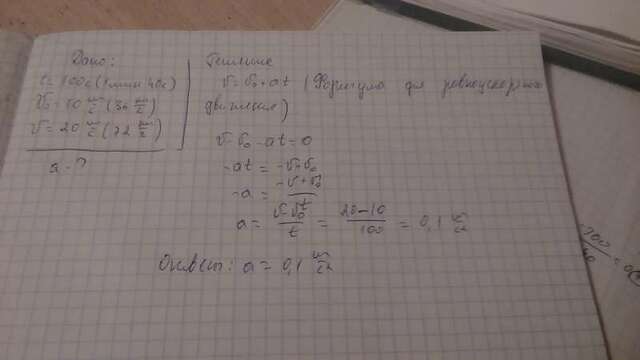 Дано:
t = 100с (1 мин 40с)
v₀ = 10 м/с (36 км/ч)
v = 20 м/с (72 км/ч)
a - ?
Решение
v = v₀ + at (Формула для равноускорного
движения)
v - v₀ - at = 0
-at = -v + v₀
-a = (-v + v₀)/t
a = (v - v₀)/t = (20 - 10)/100 = 0,1 м/с²
Ответ: a = 0,1 м/с²